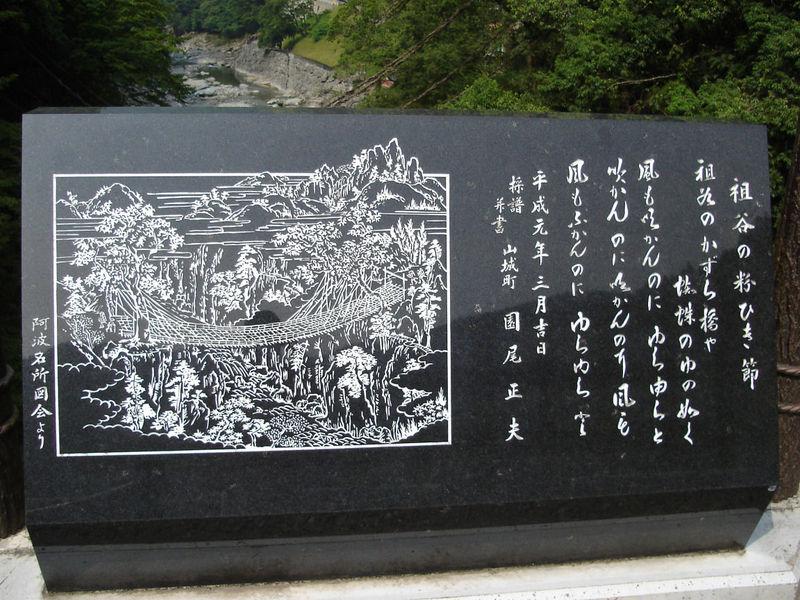 祖谷の粉ひき節
祖谷のかずら橋や
蜘蛛のゆの如く
風も吹かんのに ゆらゆらと
吹かんのに吹かんのに 風も
風もふかんのに ゆらゆら と
平成元年三月吉日
採譜
并書
山城町 園尾正夫
阿波名所図会より